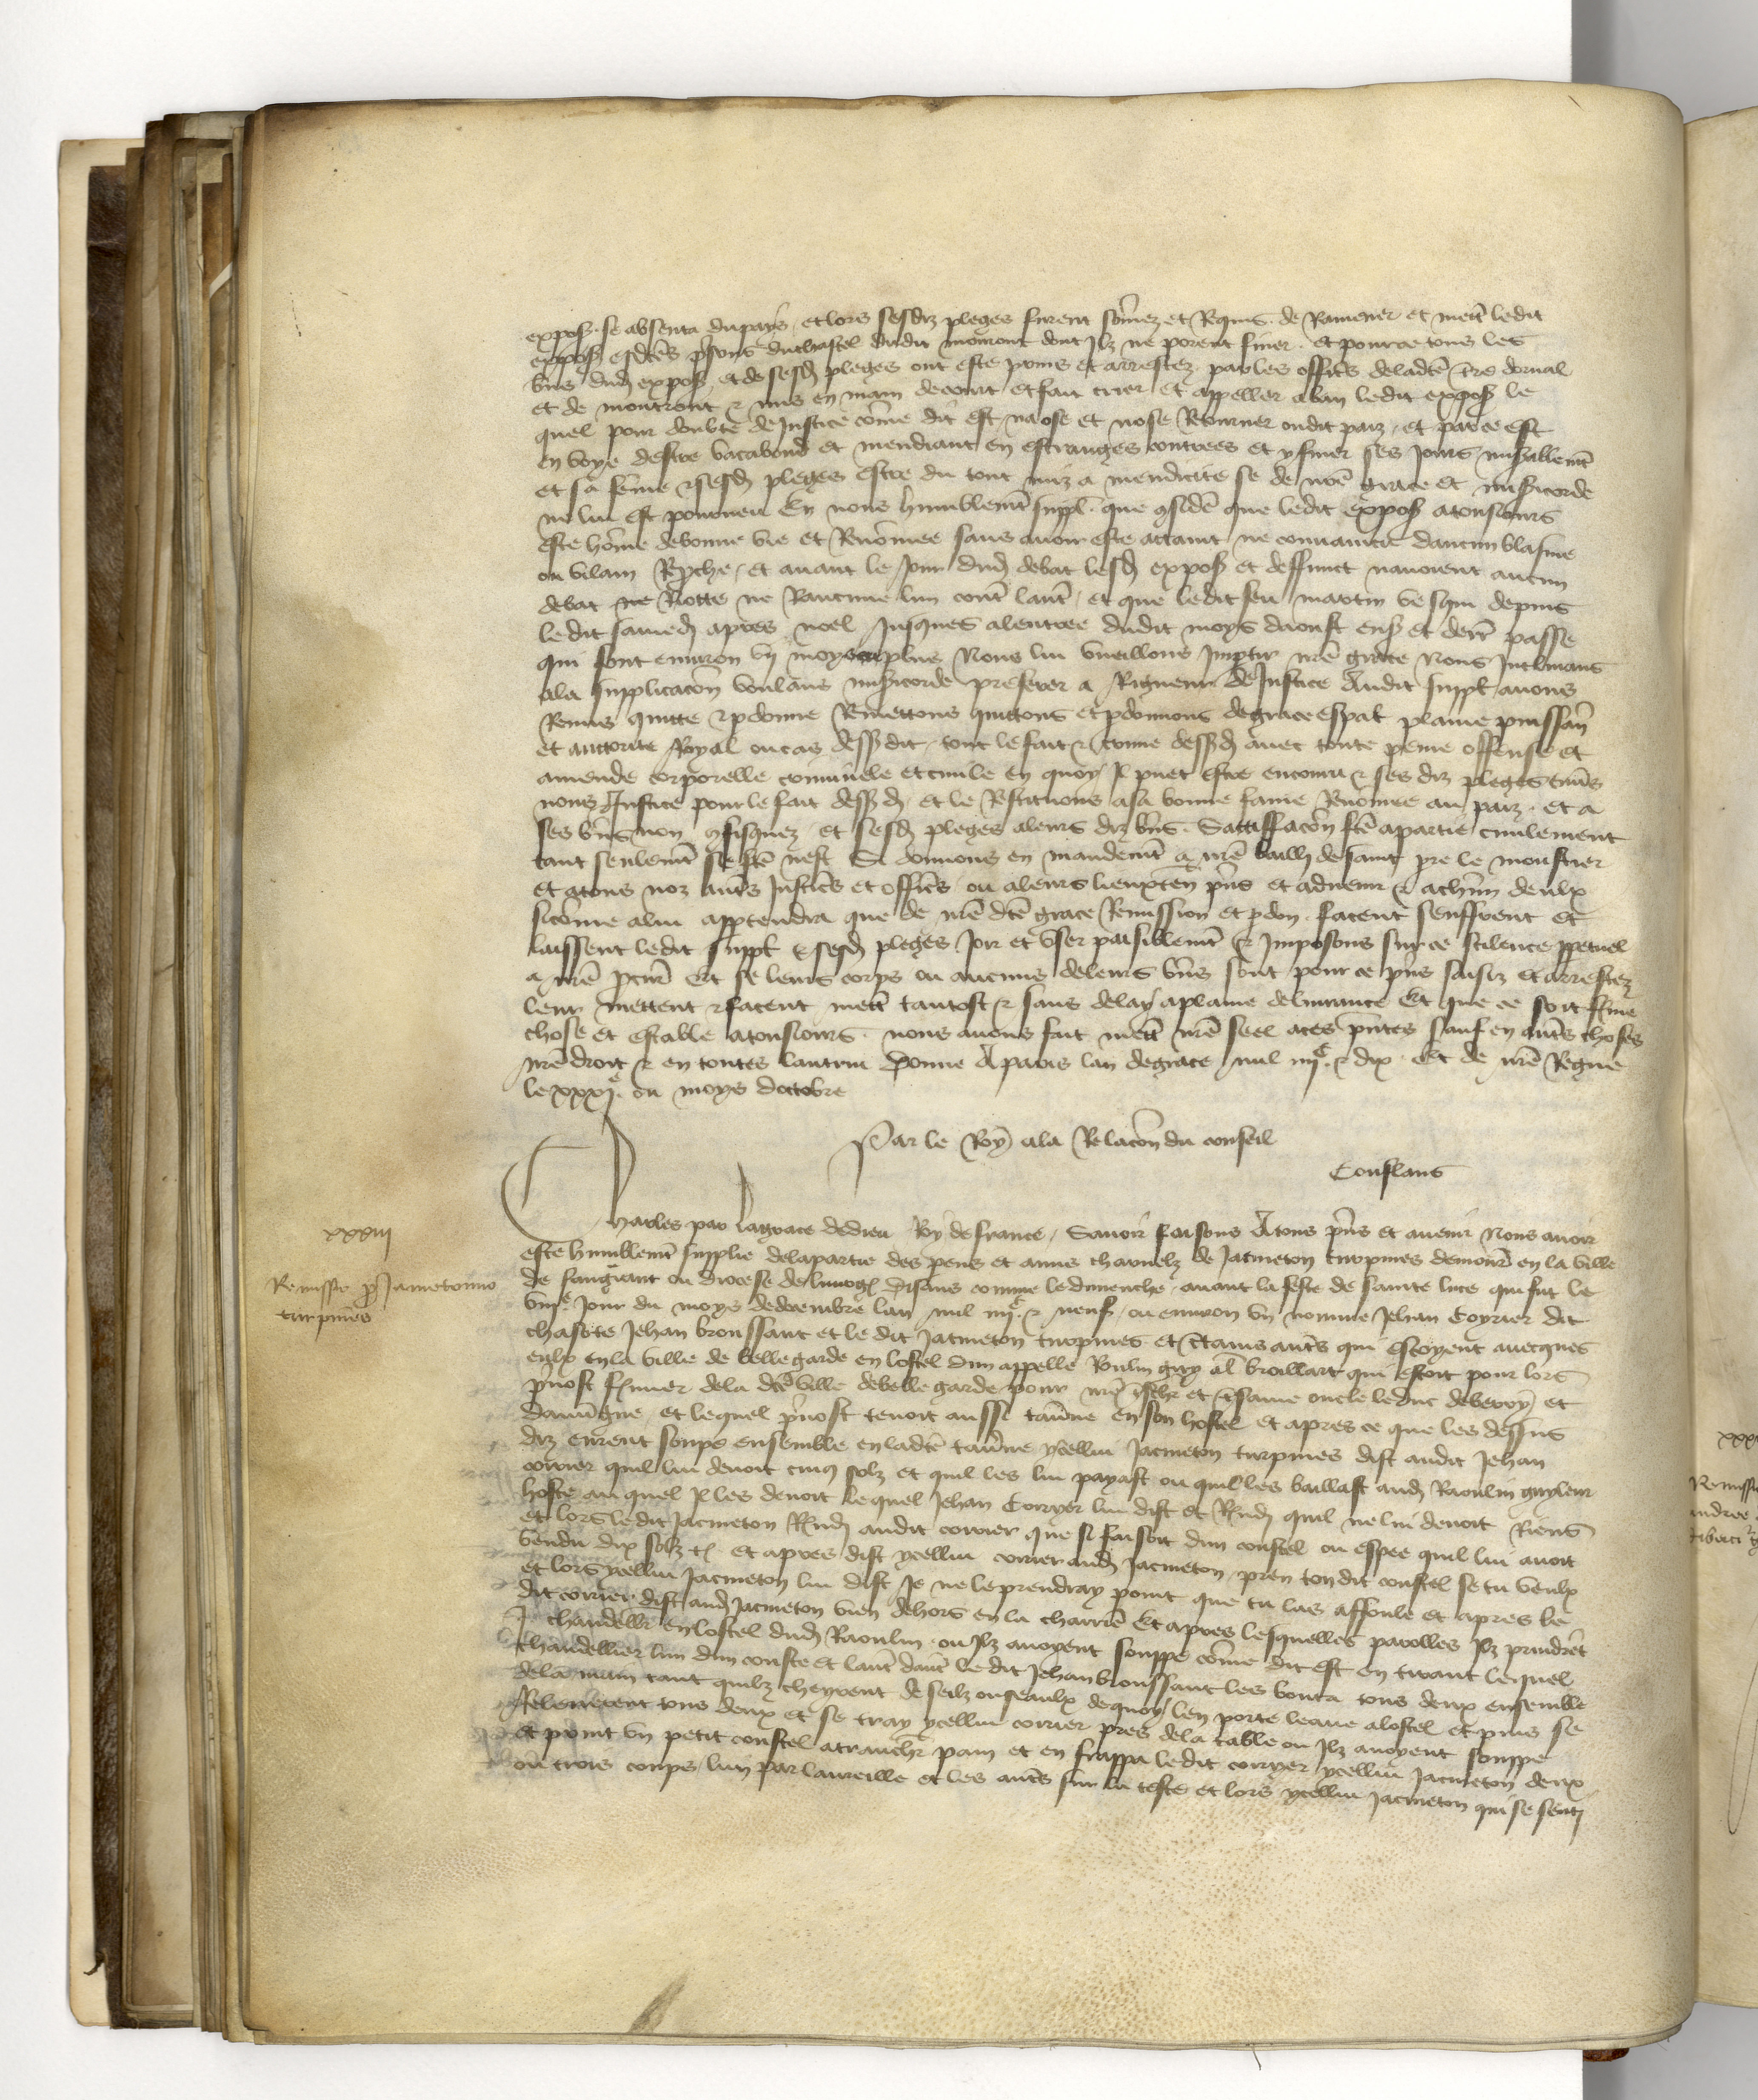 expos. se absenta du pays, et lors sesdiz pleges furent som̃ez et Requis. de Ramener et mett̃ ledit
expos esdc̃es p̃sons du chastel dudit momont dont Ilz ne porent finer. et pource tous les
biẽs dud expos, et de sesd pleges ont este prins et arrestez par les offic̃s deladc̃e tr̃e dornal
et de montront & mis en main de court et fait crier et appeller a ban ledit expos le
quel pour doubte de Justice com̃e dit est na ose et nose Retourner oudit paiz, et par ce est
en voye destre vacabond et mendiant en estranges contrees et y finer ses Jours miẜablem̃t
et sa fem̃e & sesd pleges estre du tout miz a mendicite se de nr̃e grace et miẜicorde
ne lui est pourveu En nous humblem̃t suppl. que ꝯsidẽ que ledit expos a tousiours
este hom̃e de bonne vie et Renom̃ee sans avoir este attaint ne convaincu daucun blasme
ou vilain Rep̃che, et avant le Jour dud debat lesd expos et deffunct navoient aucun
debat ne Riotte ne Rancune lun cont̃ laut̃, et que ledit feu martin vesqui depuis
ledit samedi apres noel Jusques alentree dudit moys daoust ens et dern̄ passe
qui sont environ vij moys ou plus Nous lui vueillons Imp̃tir nr̃e grace Nous Inclinans
ala supplicacõn voulãns miẜicorde preferer a Rigueur de Justice Audit suppl̃ avons
Remis quitte & p̱donne Remettons quittons et p̱donnons de grace esp̃al plaine puissãn
et auctorite Royal ou cas dessusdit, tout le fait & crime dessusd avec toute peine offense et
amende corporelle criminele et civile en quoy Il puet estre encouru & ses diz pleges envs̃
nous & Justice pour le fait dessusd et le Restituons asa bonne fame Renom̃ee au paiz. et a
ses biẽs non ꝯfisquez, et sesd pleges aleurs diz biẽs. Sattiffacõn fc̃e apartie civilement
tant seulem̃t se fc̃e nest Si donnons en mandem̃t a nr̃e bailli de saint p̃re le moustier
et atous noz aut̃s Justic̃s et offic̃s, ou aleurs lieuxten̄ p̃ns et advenir & a ch̃un deulx
sicom̃e alui app̱tendra que de nr̃e dc̃e grace Remission et p̱don. facent seuffrent et
laissent ledit suppl̃ & sesd pleges Joir et user paisiblem̃t & Imposons sur ce silence p̱petuel
a nr̃e p̱cur̃ Et se leurs corps ou aucuns deleurs biẽs sont pour ce p̃ns saisiz et arrestez
leur mettent & facent mett̃ tantost & sans delay aplaine delivrance Et que ce soit ferme
chose et estable atousiours. nous avons fait mett̃ nr̃e seel aces p̃ntes sauf en aut̃s choses
nr̃e droit & en toutes lautrui Donne A paris lan de grace mil iiijc. & dix. Et de nr̃e Regne
le xxxje. ou moys doctobre
Par le Roy ala Relacõn du conseil
Conflans
Charles par la grace de dieu Roy de france, Savoir faisons Atous p̃ns et avenir Nous avoir
xxxiij
este humblem̃t supplie dela partie des p̱ens et amis charnelz de Jacmeton turpines demour̃ en la ville
Remissio p̱ Jametono
turpines
de sangiant ou diocese de limoges disans comme le dimenche avant la feste de saincte luce qui fut le
viije. Jour du moys de decembre lan mil iiijc. & neuf, ou environ un nomme Jehan Coyrier dit
chasote Jehan broussaut et le dit Jacmeton turpines et c̃tains aut̃s qui estoyent avecques
eulx en la ville de bellegarde en lostel dun appelle Roulin guy al̃ broillart qui estoit pour lors
p̃vost fermier dela dc̃e ville de bellegarde pour nr̃e t̃scher et t̃same oncle le duc de berry et
dauvergne, et lequel p̃vost tenoit aussi tav̂ne en son hostel et apres ce que les dessus
diz eurent soupe ensemble en ladc̃e tav̂ne ycellui Jacmeton turpines dist audit Jehan
corrier quil lui devoit cinq solz et quil les lui payast ou quil les baillast aud Raoulin guyleur
hoste au quel Il les devoit lequel Jehan Corryer lui dist & Rnd̃ quil ne lui devoit Riens
et lors ledit Jacmeton Rnd̃ audit corrier que si faisoit dun coustel ou espee quil lui avoit
vendu dix solz t. et apres dist ycellui corrier aud Jacmeton, pren ton dit coustel se tu veulx
et lors ycellui Jacmeton lui dist Je ne le prendray point que tu las affoule et apres le
dit corrier dist aud Jacmeton vien dehors en la charrie Et apres lesquelles parolles Ilz prindrẽt
I chandelier en lostel dud Raoulin ou Ilz avoyent souppe com̃e dit est en tirant lequel
chandellier lun dun coste et laut̃ daut̃ le dit Jehan broussaut les bouta tous deux ensemble
dela main tant quilz cheyrent de seilz ou seaulx dequoy len porte leaue alostel et puis se
Releverent tous deux et se tray ycellui corrier pres dela table ou Ilz avoyent souppe
et print un petit coustel atrancher pain et en frappa ledit corryer ycellui Jacmeton deux
ou trois coups, lun par laureille et les aut̃s sur la teste et lors ycellui Jacmeton qui se senti